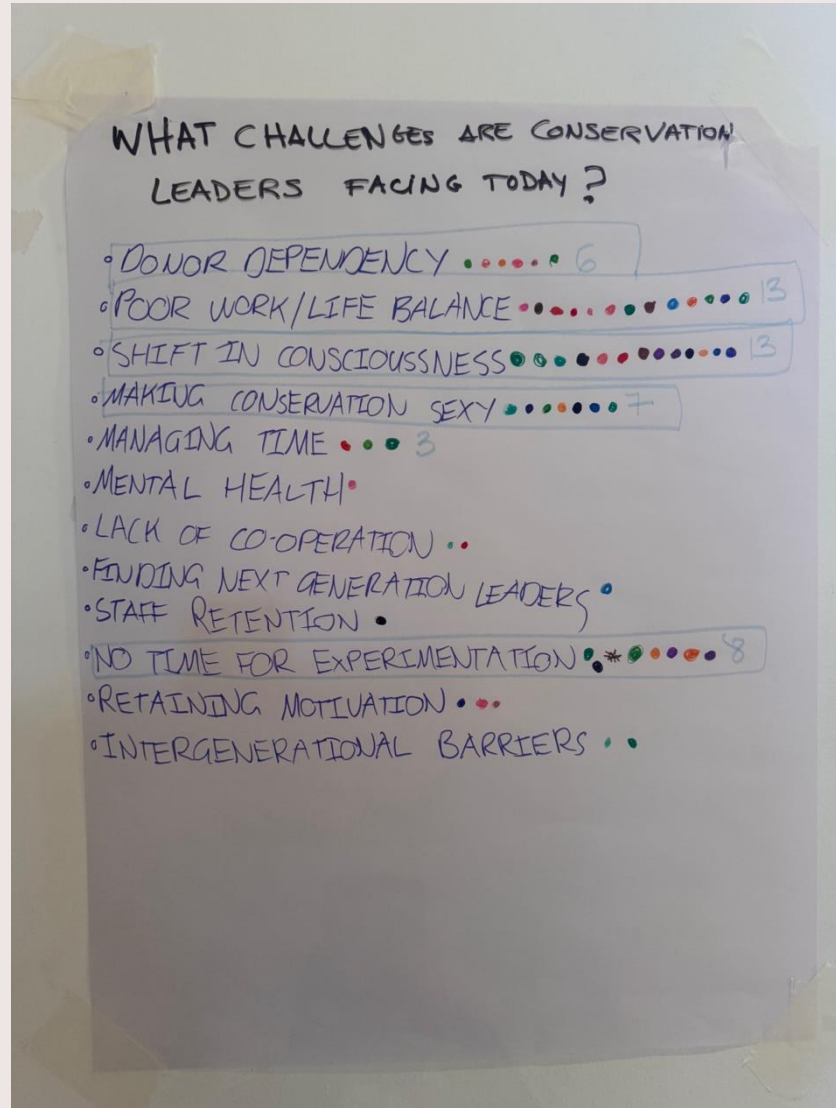 WHAT CHALLENGES ARE CONSERVATION
LEADERS FACING TODAY?
DONOR DEPENDENCY 6
POOR WORK/LIFE BALANCE 13
SHIFT IN CONSCIOUSSNESS 13
MAKING CONSERVATION SEXY 7
MANAGING TIME 3
MENTAL HEALTH
LACK OF CO-OPERATION
FINDING NEXT GENERATION LEADERS
STAFF RETENTION
NO TIME FOR EXPERIMENTATION 8
RETAINING MOTIVATION
INTERGENERATIONAL BARRIERS